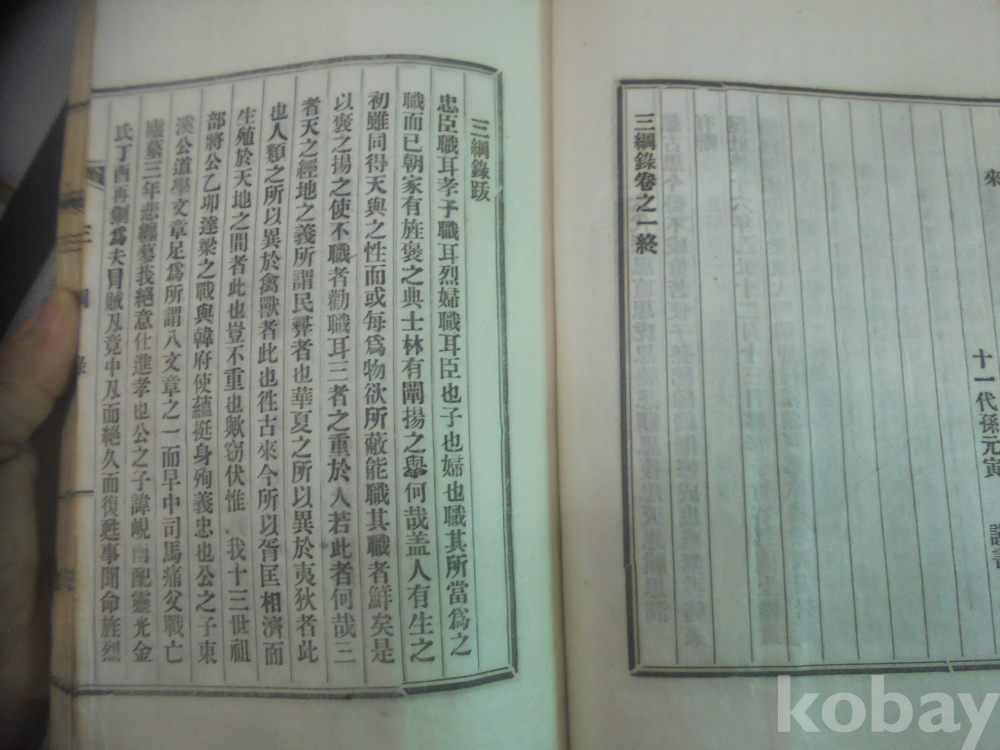 來
十一代孫元寅
三綱錄卷之一終
三綱錄跋
忠臣職耳孝子職耳烈婦職耳臣也子也婦也職其所當爲之
職而已朝家有旌褒之典士林有闡揚之擧何哉盖人有生之
初雖同得天與之性而或每爲物欲所蔽能職其職者鮮矣是
以褒之揚之使不職者勸職耳三者之重於人若此者何哉三
者天之經地之義所謂民彛者也華夏之所以異於夷狄者此
也人類之所以異於禽獸者此也徃古來今所以胥匡相濟而
生殖於天地之間者此也豈不重也歟窃伏惟 我十三世祖
部將公乙卯達梁之戰與韓府使蘊挺身殉義忠也公之子東
溪公道學文章足爲所謂八文章之一而早中司馬痛父戰亡
廬墓三年悲纏蓼莪絕意仕進孝也公之子諱峴南配靈光金
氏丁酉再亂爲夫冒賊刄竟中刄而絕久而復甦事聞命旌烈
三綱錄
kobay